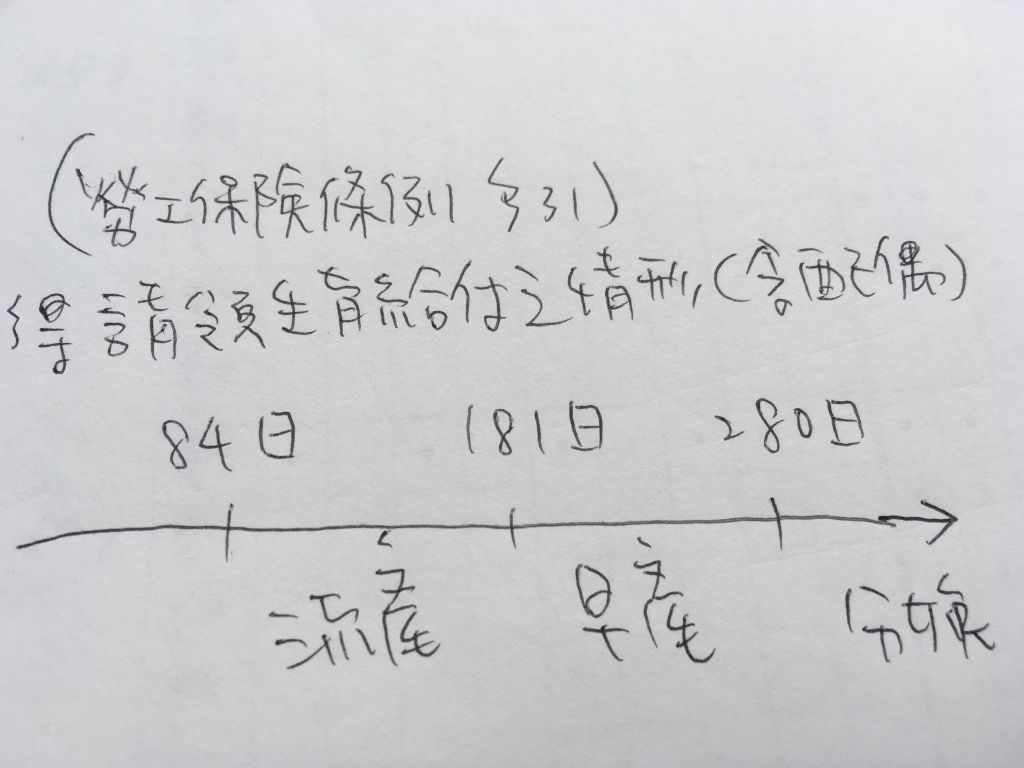 (勞工保險條例 §31)
得請領生育給付之情形(含配偶)
84日 181日 280日
流產 早產 分娩